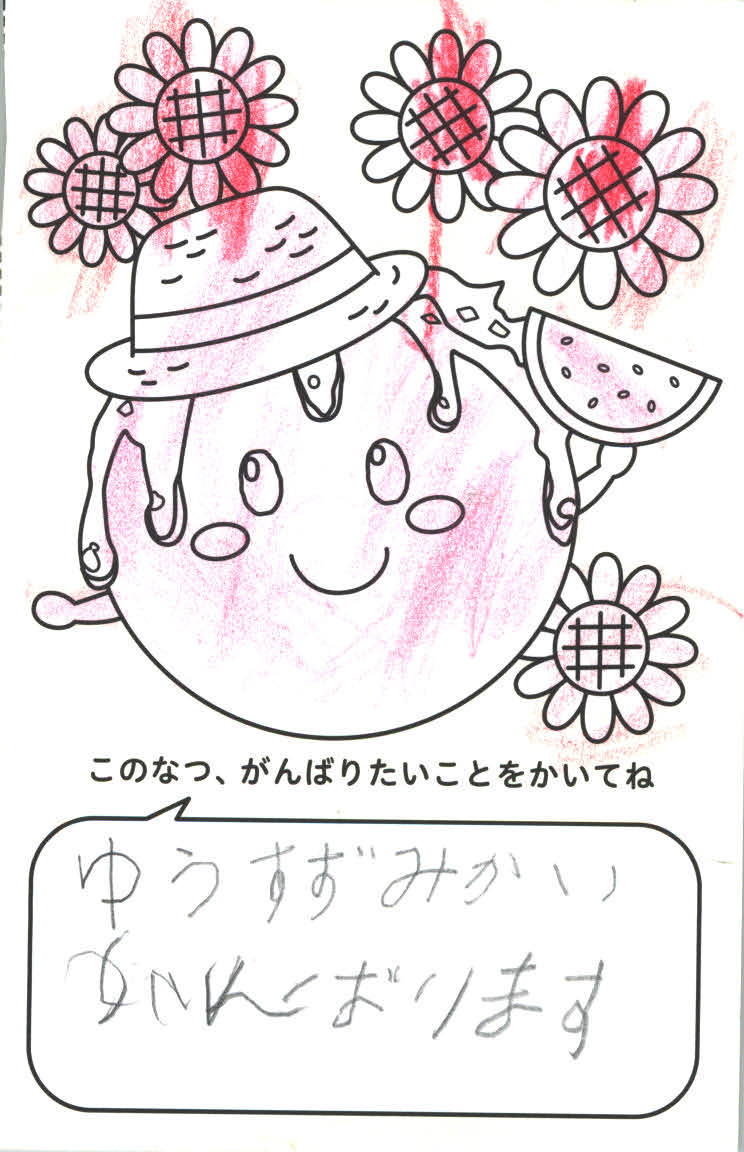 このなつ、がんばりたいことをかいてね
ゆうすずみかい
がんばります